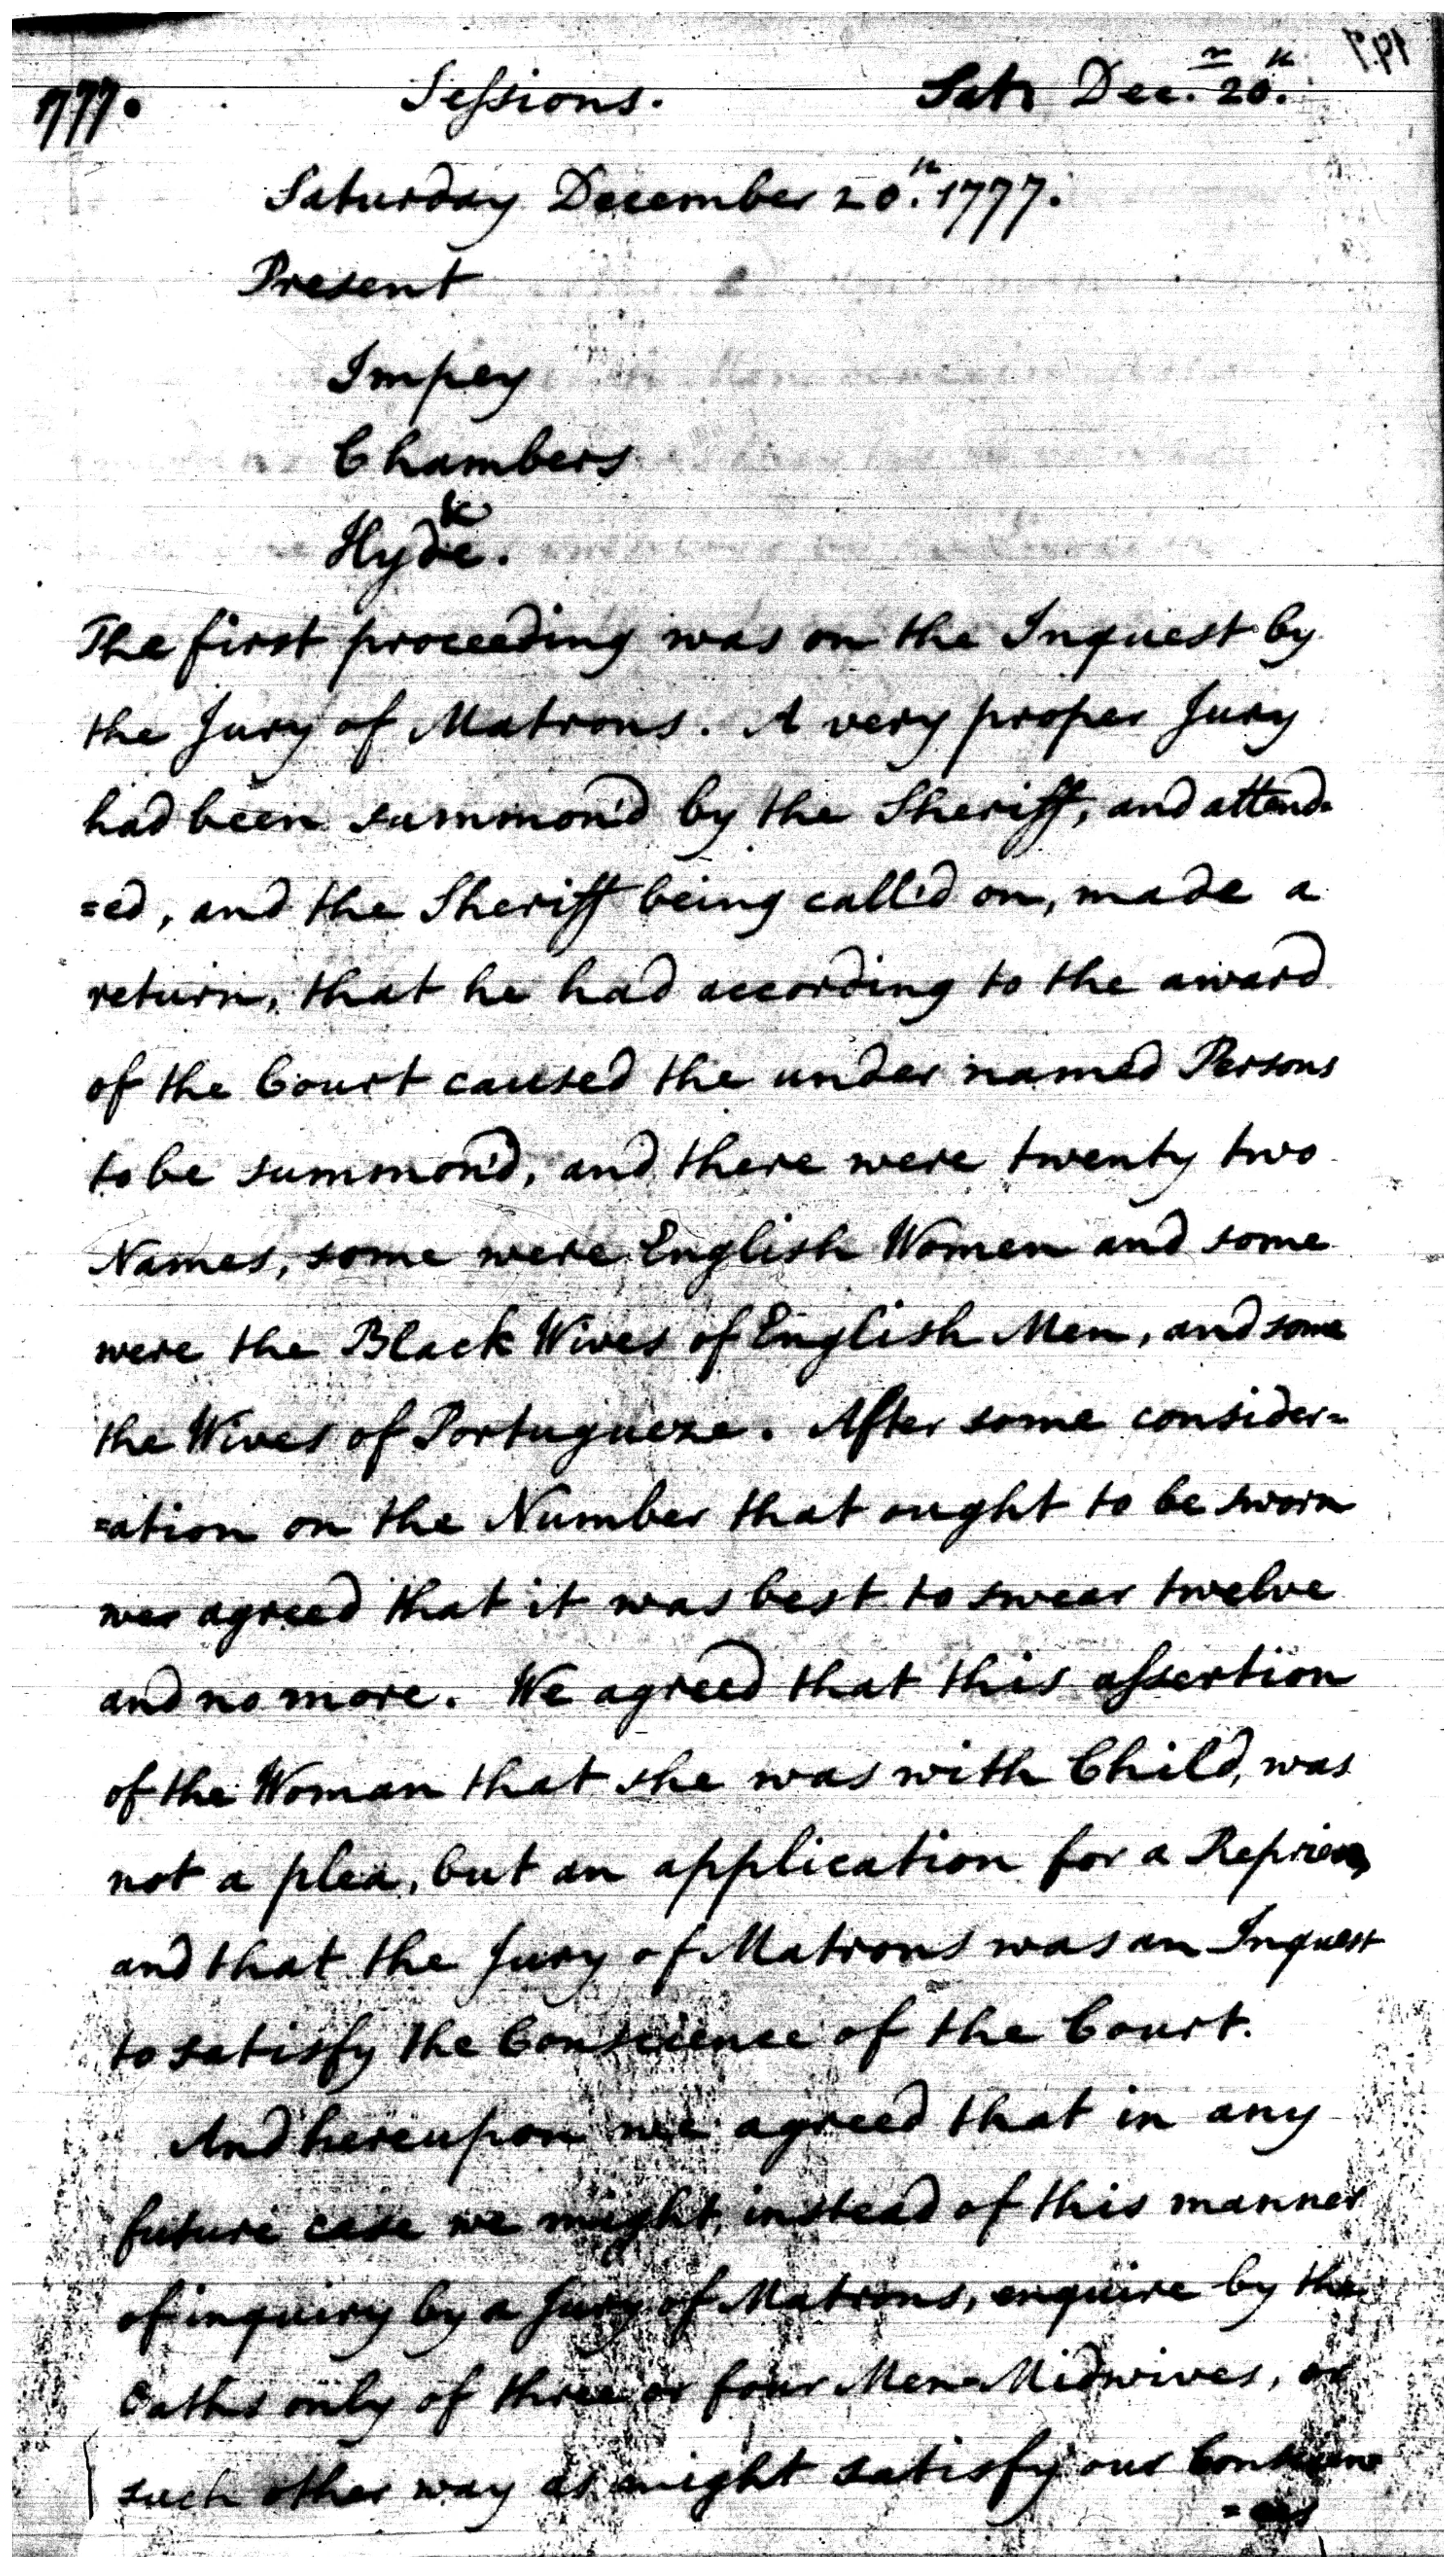 1777. Sessions. Sat. Dec.r 20.th
Saturday December 20.th 1777.
Present
Impey
Chambers
Hyde.
The first proceeding was on the Inquest by
the Jury of Matrons. A very proper Jury
had been summon'd by the Sheriff, and attend=
=ed, and the Sheriff being call'd on, made a
return, that he had according to the award
of the Court caused the under named Persons
to be summon'd, and there were twenty two
Names, some were English Women and some
were the Black Wives of English Men, and some
the Wives of Portugueze. After some consider=
=ation on the Number that ought to be sworn
we agreed that it was best to swear twelve
and no more. We agreed that this assertion
of the Woman that she was with Child, was
not a plea, but an application for a Reprieve,
and that the Jury of Matrons was an Inquest
to satisfy the Conscience of the Court.
And hereupon we agreed that in any
future case we might, instead of this manner
of inquiry by a Jury of Matrons, enquire by the
Oaths only of three or four Men=Midwives, or
such other way as might satisfy our Conscienc=